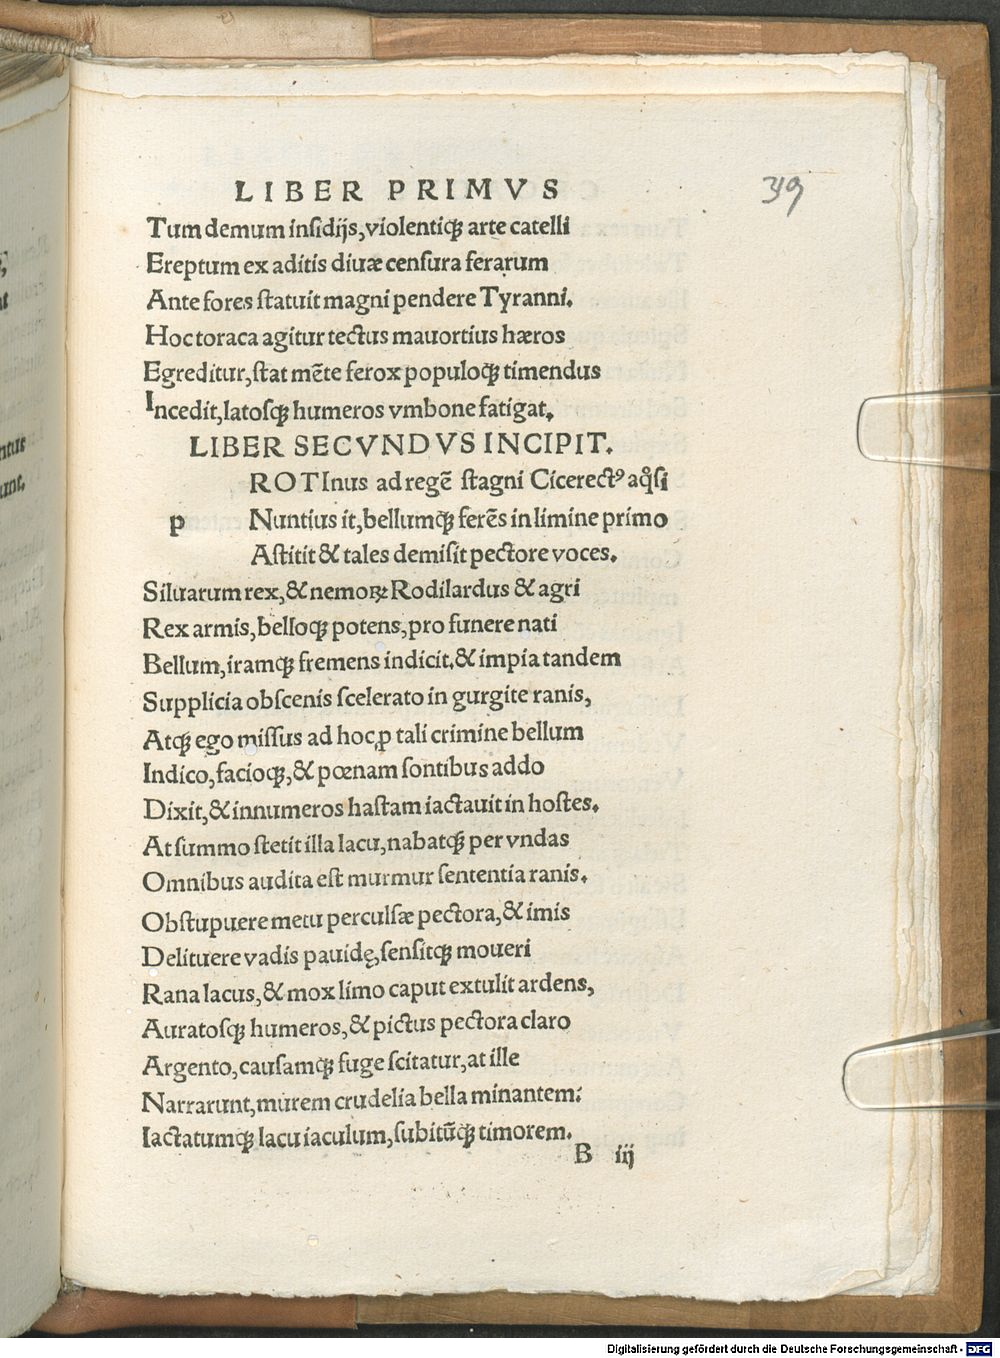 LIBER PRIMVS
39
Tum demum insidijs, violentiqꝫ arte catelli
Ereptum ex aditis diuæ censura ferarum
Ante fores statuit magni pendere Tyranni.
Hoc toraca agitur tectus mauortius hæros
Egreditur, stat mēte ferox populoqꝫ timendus
Incedit, latosqꝫ humeros vmbone fatigat.
LIBER SECVNDVS INCIPIT.
ROTInus ad regē stagni Cicerectꝰ aq̊si
p Nuntius it, bellumqꝫ ferēs in limine primo
Astitit & tales demisit pectore voces.
Siluarum rex, & nemoꝝ Rodilardus & agri
Rex armis, belloqꝫ potens, pro funere nati
Bellum, iramqꝫ fremens indicit. & impia tandem
Supplicia obscenis scelerato in gurgite ranis,
Atqꝫ ego missus ad hoc, ꝓ tali crimine bellum
Indico, facioqꝫ, & pœnam sontibus addo
Dixit, & innumeros hastam iactauit in hostes.
At summo stetit illa lacu, nabatqꝫ per vndas
Omnibus audita est murmur sententia ranis.
Obstupuere metu perculsæ pectora, & imis
Delituere vadis pauidę, sensitqꝫ moueri
Rana lacus, & mox limo caput extulit ardens,
Auratosqꝫ humeros, & pictus pectora claro
Argento, causamqꝫ fuge scitatur, at ille
Narrarunt, murem crudelia bella minantem:
Iactatumqꝫ lacu iaculum, subitūqꝫ timorem.
B iij
Digitalisierung gefördert durch die Deutsche Forschungsgemeinschaft - DFG